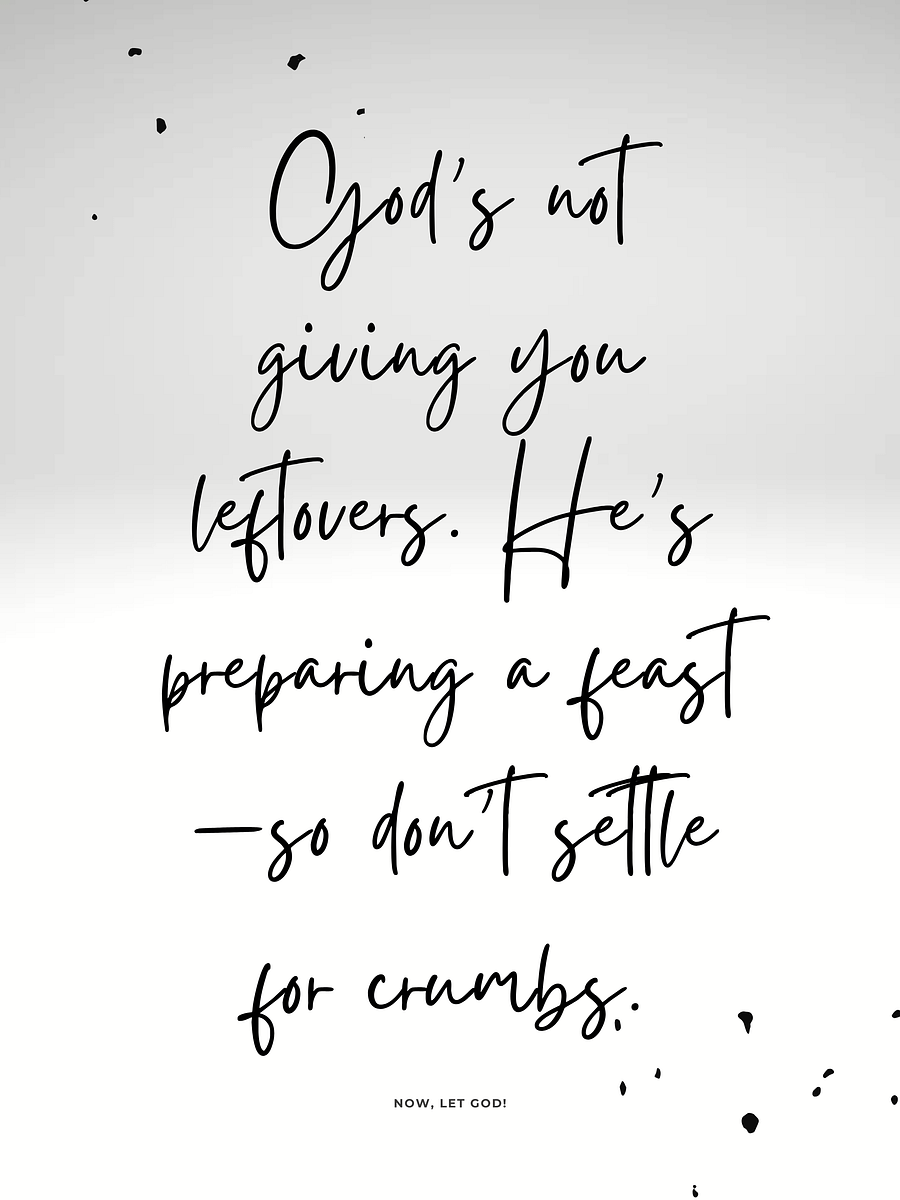 God's not
giving you
leftovers. He's
preparing a feast
—so don't settle
for crumbs.
NOW, LET GOD!